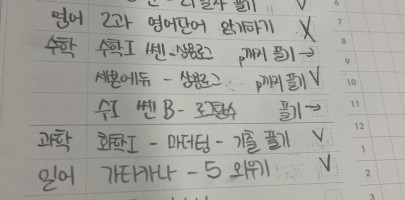 풀기 V
영어 2과 영어단어 암기하기 X
수학 수학I 쎈-상용로그 p까지 풀기 →
세븐에듀 - 상용로그 p까지 풀기 V
수I 쎈 B - 로그함수 풀기 →
과학 화학I - 마더텅 - 기출 풀기 V
일어 가타카나 - 5 외우기 V
6
7
8
9
10
11
12
1
2
3